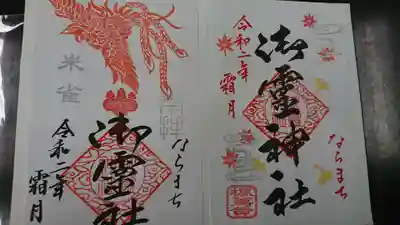 令和二年
霜月
御靈神社
ならまち
朱雀
御靈社
ならまち
令和二年
霜月